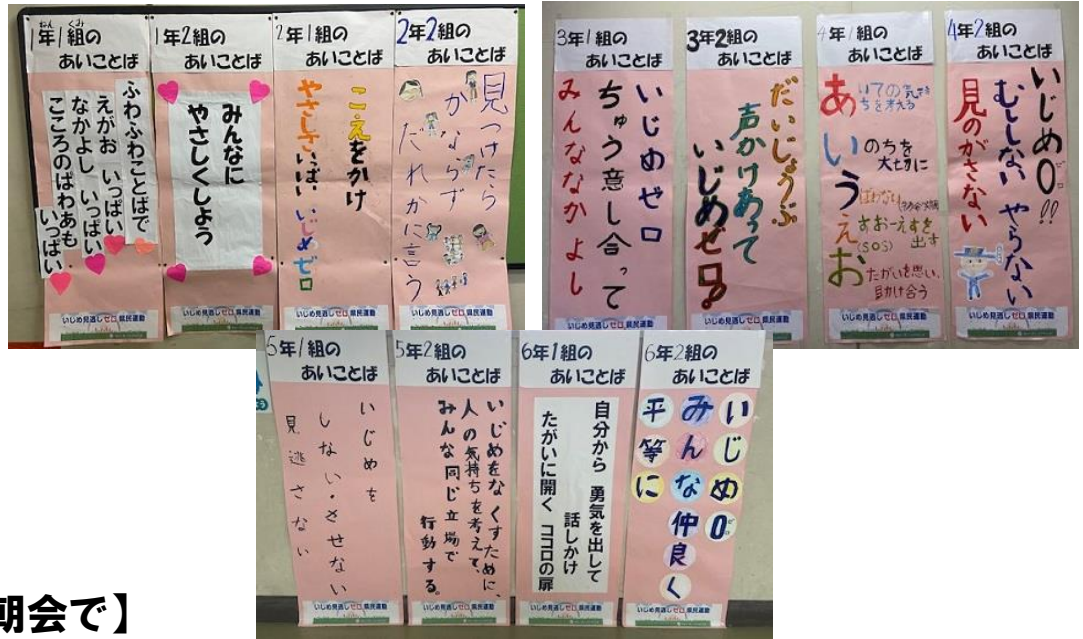 1年1組の
あいことば
ふわふわことばで
えがお いっぱい
なかよし いっぱい
こころのぱわあも
いっぱい
いじめ見逃しゼロ県民運動
1年2組の
あいことば
みんなに
やさしくしよう
いじめ見逃しゼロ県民運動
2年1組の
あいことば
こえをかけ
やさしさいっぱい いじめゼロ
いじめ見逃しゼロ県民運動
2年2組の
あいことば
見つけたら
かならず
だれかに言う
いじめ見逃しゼロ県民運動
3年1組の
あいことば
いじめゼロ
ちゅう意し合って
みんななかよし
いじめ見逃しゼロ県民運動
3年2組の
あいことば
だいじょうぶ
声かけあって
いじめゼロ
いじめ見逃しゼロ県民運動
4年1組の
あいことば
あいての気持
ちを考える
いのちを
大切に
う
えすおーえすを
(SOS) 出す
おたがいを思い、
助け合う
いじめ見逃しゼロ県民運動
4年2組の
あいことば
いじめ0!!
むししない やらない
見のがさない
いじめ見逃しゼロ県民運動
5年1組の
あいことば
いじめを
しない・させない
見逃さない
いじめ見逃しゼロ県民運動
5年2組の
あいことば
いじめをなくすために、
人の気持ちを考えて、
みんな同じ立場で
行動する。
いじめ見逃しゼロ県民運動
6年1組の
あいことば
自分から 勇気を出して
話しかけ
たがいに開く ココロの扉
いじめ見逃しゼロ県民運動
6年2組の
あいことば
いじめ0
みんな仲良く
平等に
いじめ見逃しゼロ県民運動
朝会で】